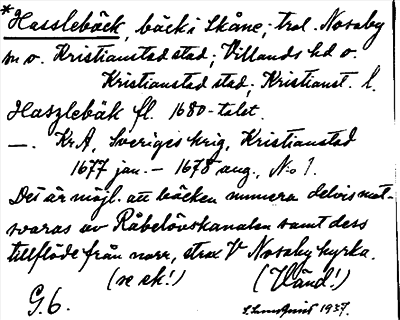 *Hasslebäck, bäck i Skåne; trol. Nosaby
sn o. Kristianstad stad; Villands hd o.
Kristianstad stad; Kristianst. l.
Haszlebäk fl. 1680-talet.
—. Kr.A, Sveriges krig, Kristianstad
1677 jan. – 1678 aug., N:o 1.
Det är möjl. att bäcken numera delvis mot-
svaras av Råbelövskanalen samt dess
tillflöde från norr, strax V Nosaby kyrka.
(se sk!) (Vänd!)
G.6. 1937.